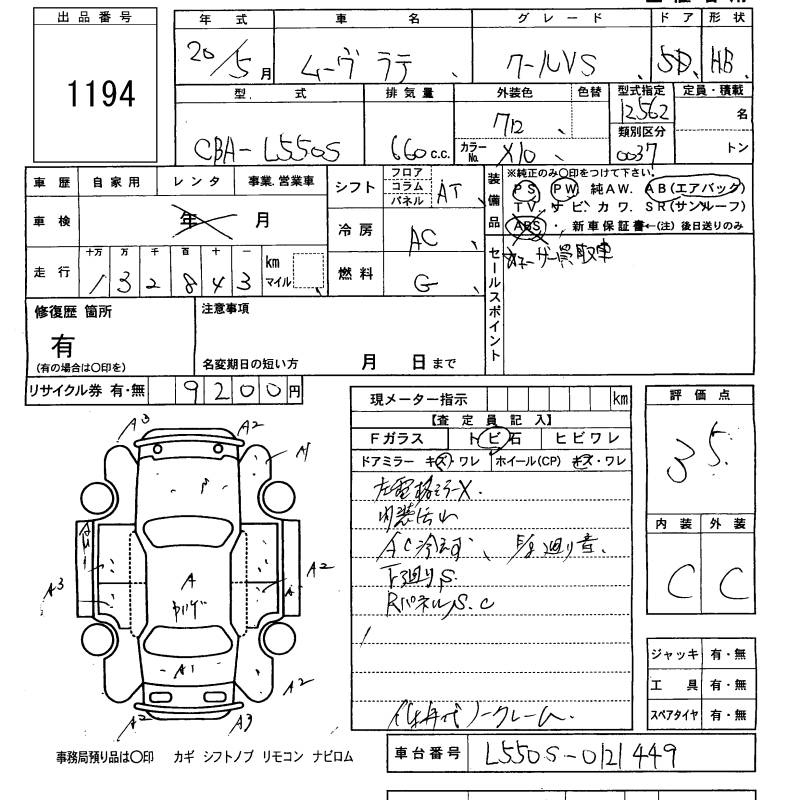 出品番号
1194
年式 車名 グレード ドア 形状
20/5月 ムーヴ ラテ クールVS 5D HB
型式 排気量 外装色 色替 型式指定 定員・積載
CBA-L550S 660c.c. 712 12562 名
カラーNo. X10 類別区分 0037 トン
車歴 自家用 レンタ 事業.営業車
車検 年 月
走行 十万 万 千 百 十 一 km マイル
132843
シフト フロア コラム パネル AT
冷房 AC
燃料 G
装備品
※純正のみ○印をつけて下さい。
PS PW 純AW. AB(エアバッグ)
TV. ナビ. カワ. SR(サンルーフ)
ABS・新車保証書←(注)後日送りのみ
セールスポイント
ユーザー買取車
修復歴 箇所
有
(有の場合は○印を)
注意事項
名変期日の短い方 月 日まで
リサイクル券 有・無 9200円
現メーター指示 km
【査定員記入】
Fガラス トビ石 ヒビワレ
ドアミラー キズ・ワレ ホイール(CP) キズ・ワレ
左電格ミラーX.
AC冷えず、
下廻りS.
RパネルS.C
ノークレーム.
評価点
3.5
内装 外装
C C
ジャッキ 有・無
工具 有・無
スペアタイヤ 有・無
A3 A2
A1
A3 A A2
A1
A2
A2 A3
事務局預り品は○印 カギ シフトノブ リモコン ナビロム
車台番号 L550S-0121449